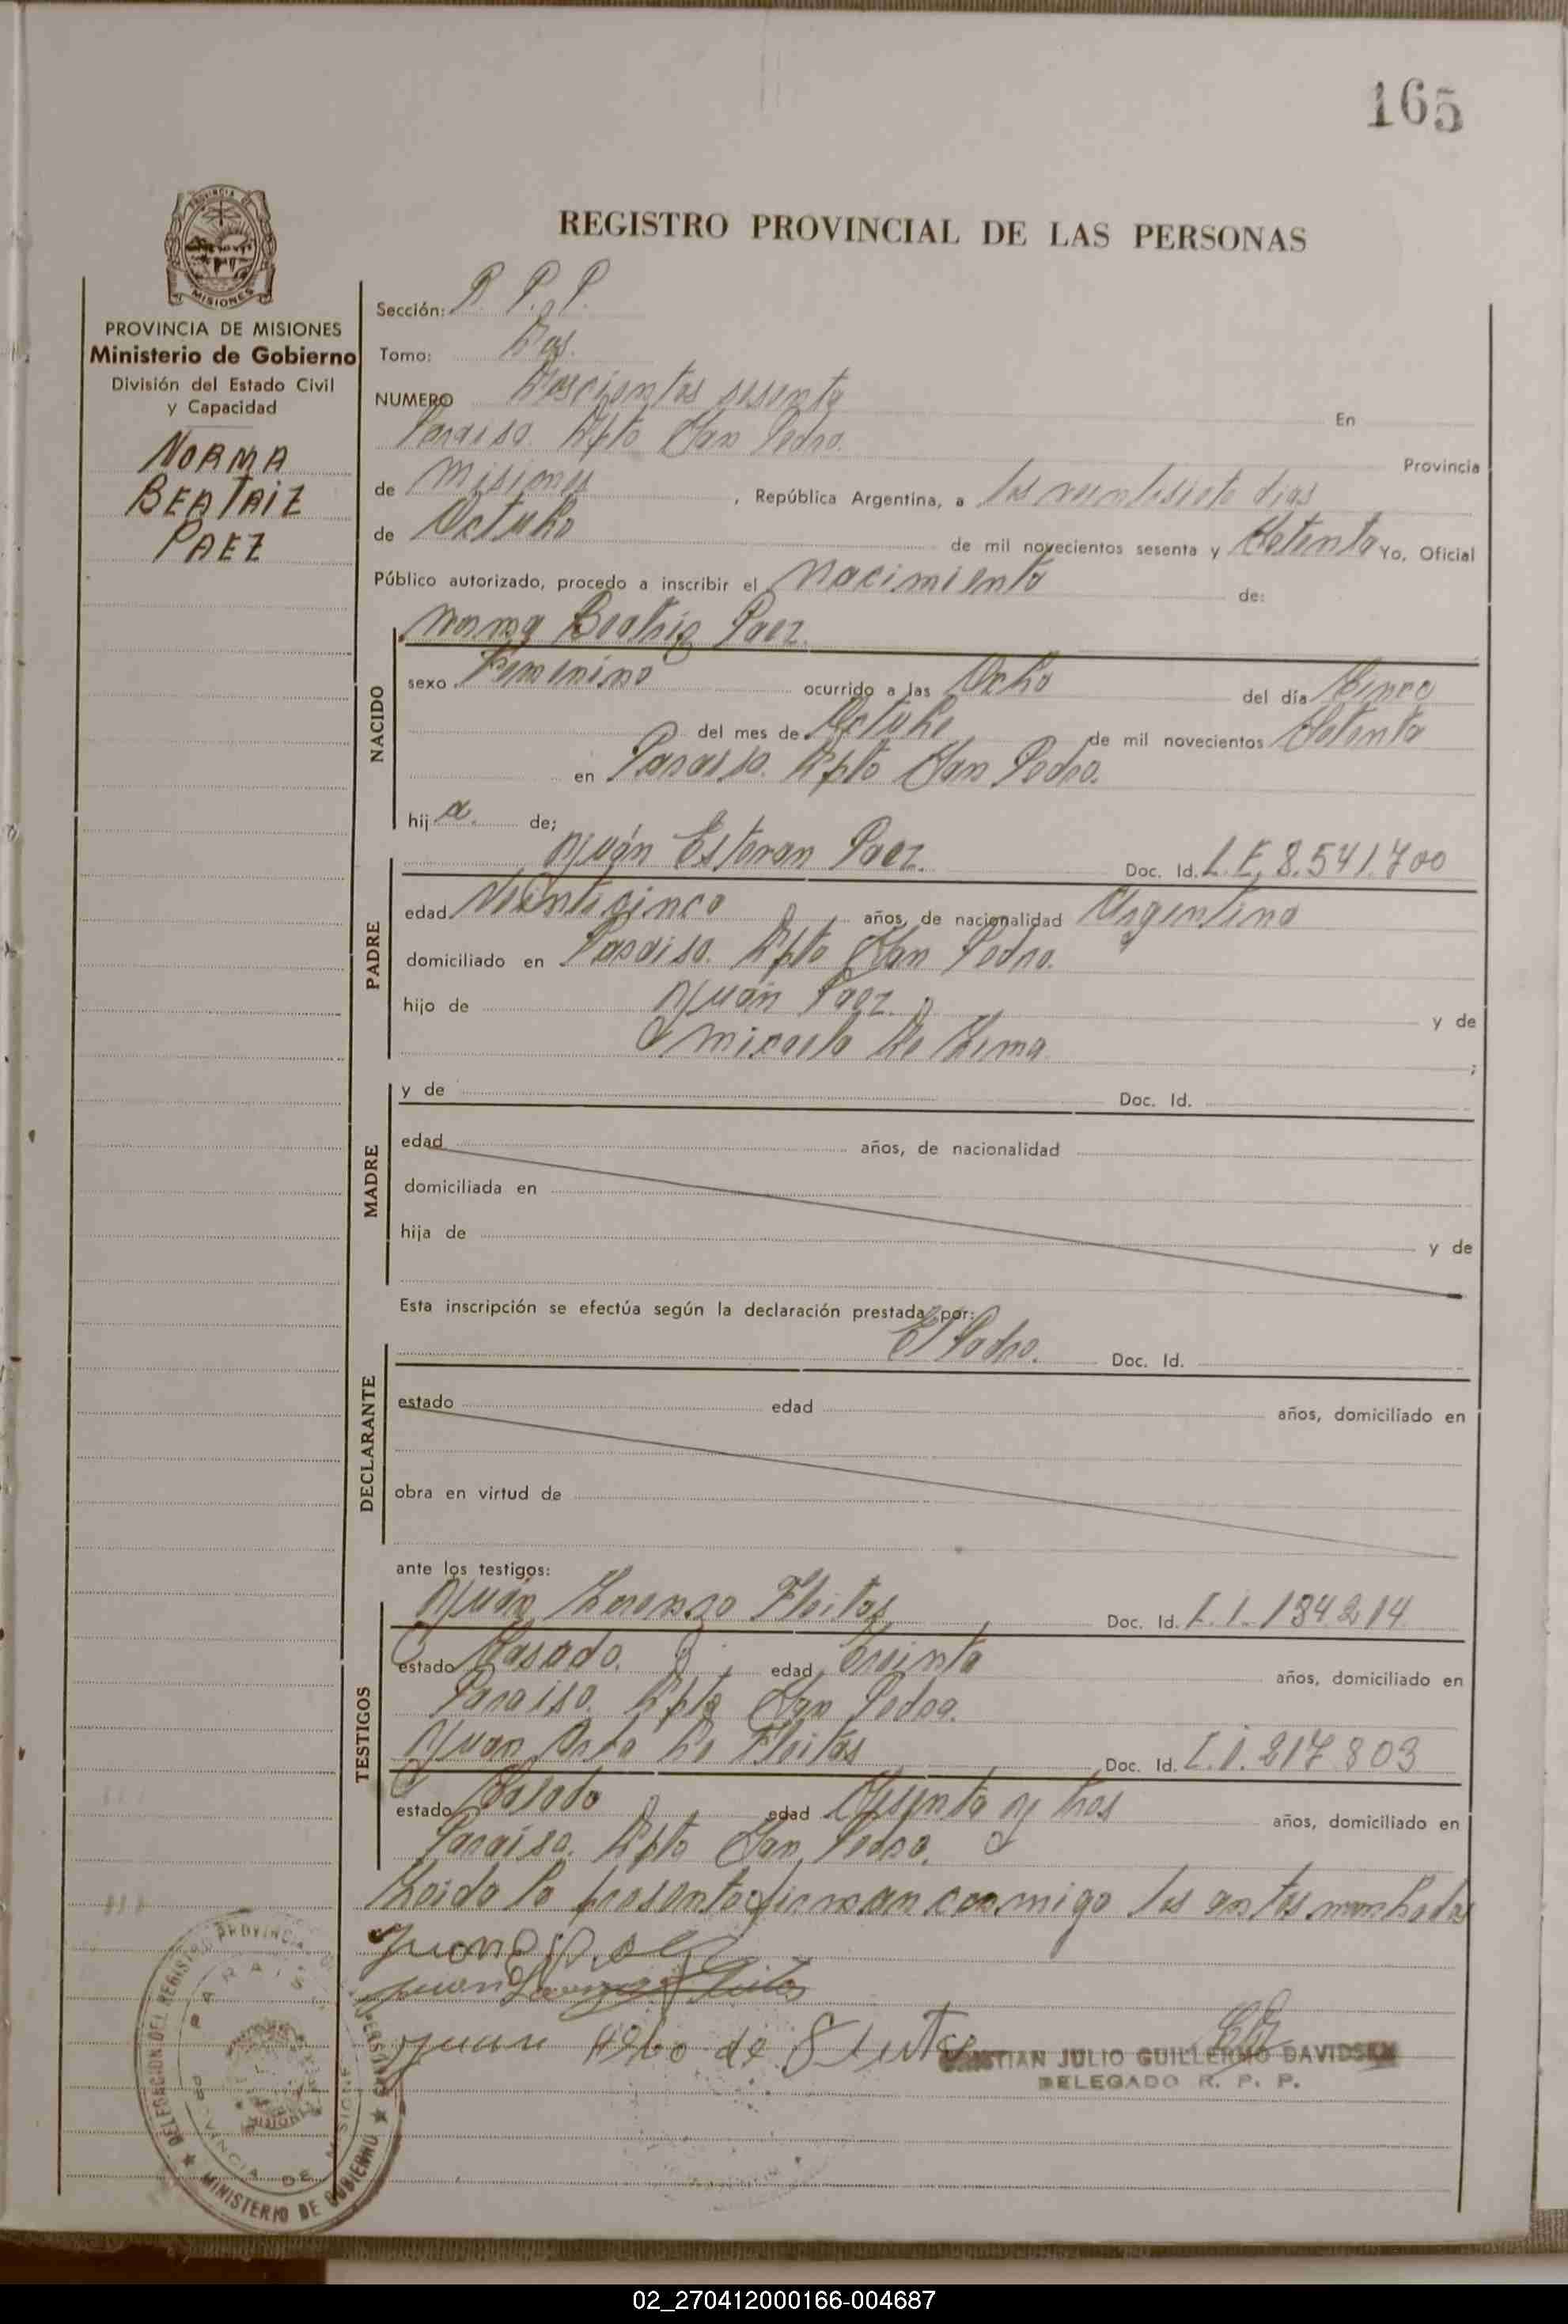 165
REGISTRO PROVINCIAL DE LAS PERSONAS
PROVINCIA DE MISIONES
Ministerio de Gobierno
División del Estado Civil
y Capacidad
NORMA
BEATRIZ
PAEZ
Sección: R. P. P.
Tomo: Dos.
NUMERO Doscientos sesenta En
Paraiso. Dpto San Pedro. Provincia
de Misiones, República Argentina, a los veintisiete dias
de Octubre de mil novecientos sesenta y Setenta Yo, Oficial
Público autorizado, procedo a inscribir el Nacimiento de:
Norma Beatriz Paez.
NACIDO
sexo Femenino ocurrido a las Ocho del día Cinco
del mes de Octubre de mil novecientos Setenta
en Paraiso. Dpto San Pedro.
hija. de;
PADRE
Juán Estevan Paez. Doc. Id. L.E. 8.541.700
edad Veinticinco años, de nacionalidad Argentino
domiciliado en Paraiso. Dpto San Pedro.
hijo de Juán Paez. y de
Micaela De Lima ;
MADRE
y de Doc. Id.
edad años, de nacionalidad
domiciliada en
hija de y de
Esta inscripción se efectúa según la declaración prestada por:
DECLARANTE
El Padre. Doc. Id.
estado edad años, domiciliado en
obra en virtud de
ante los testigos:
TESTIGOS
Juán Lorenzo Fleitas Doc. Id. 134.214
estado Casado. edad Treinta años, domiciliado en
Paraiso. Dpto San Pedro.
Juan De Fleitas Doc. Id. 217.803
estado Casado edad Sesenta y tres años, domiciliado en
Paraiso. Dpto San Pedro.
Leida la presente firman conmigo los antes
Juan Paez
Juan Lorenzo Fleitas
Juan de
CRISTIAN JULIO GUILLERMO DAVIDSEN
DELEGADO R. P. P.
DELEGACION DEL REGISTRO PROVINCIAL DE LAS PERSONAS
PARAISO
PROVINCIA DE MISIONES
MINISTERIO DE GOBIERNO
02_270412000166-004687